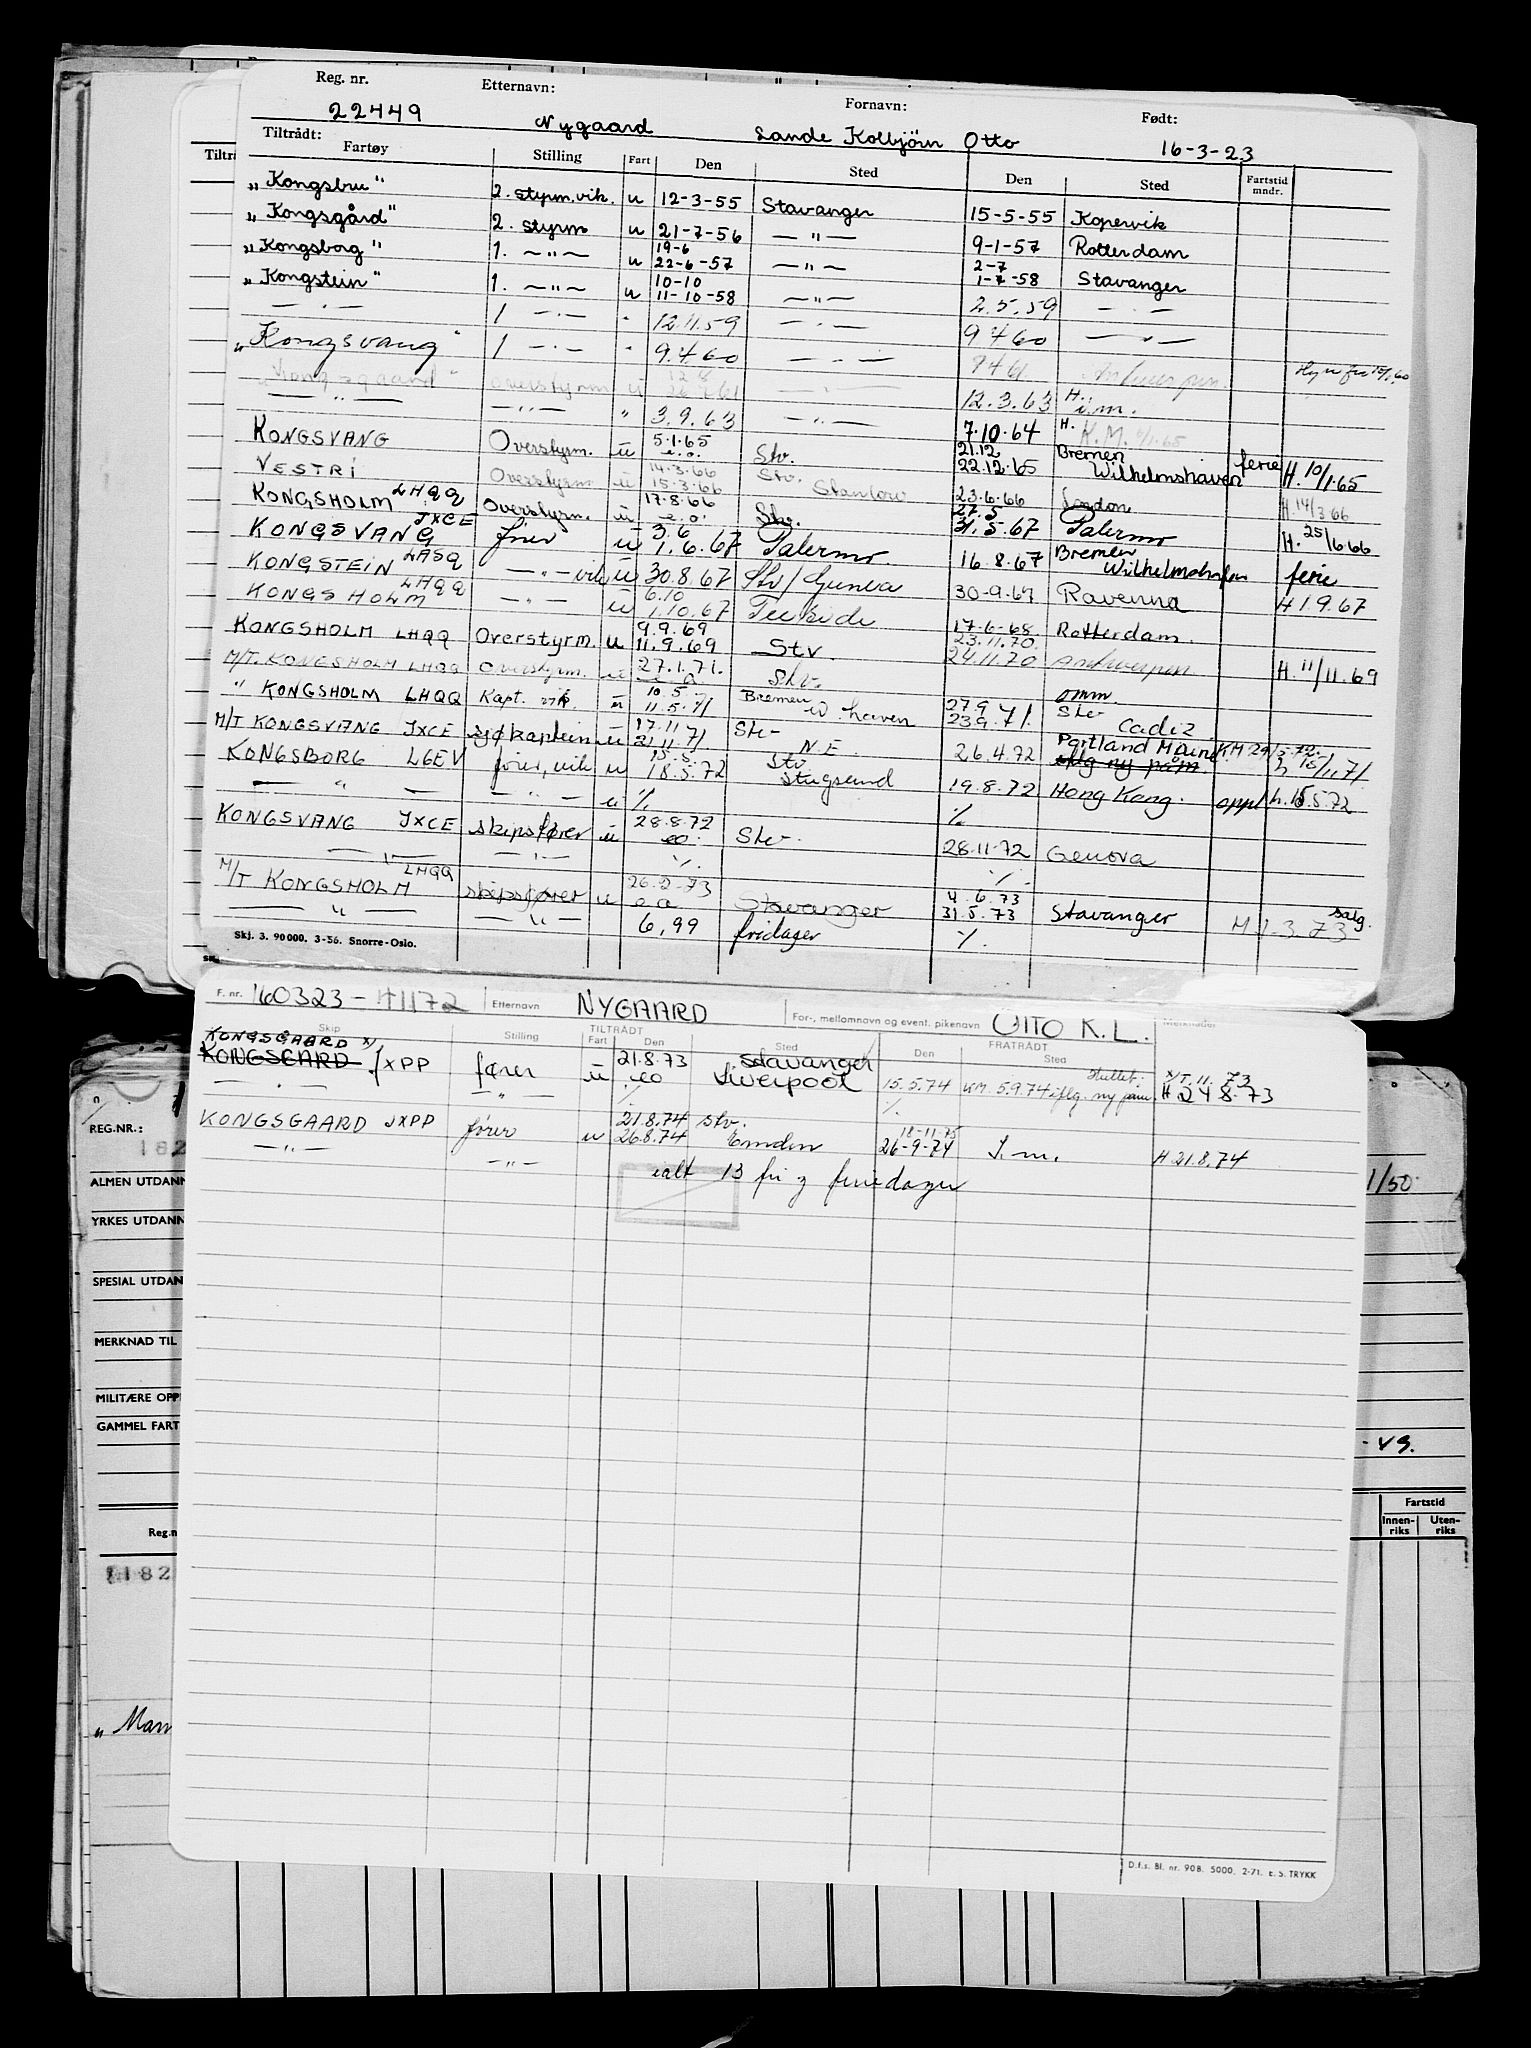 Reg. nr. Etternavn: Fornavn: Født:
22449 Nygaard Lande Kolbjörn Otto 16-3-23
Tiltrådt:
Fartøy Stilling Fart Den Sted Den Sted Fartstid mndr.
„Kongsbru" 2. styrm. vik. u 12-3-55 Stavanger 15-5-55 Kopervik
„Kongsgård" 2. styrm u 21-7-56 — " — 9-1-57 Rotterdam
„Kongsborg" 1. — " — u 19-6 22-6-57 — " — 2-7 1-7-58 Stavanger
„Kongstein" 1. — " — u 10-10 11-10-58 — " — 2.5.59 — " —
— " — 1 — " — " 12.11.59 — " — 9 4 60 — " —
„Kongsvang" 1 — " — " 9.4.60 — " — 9 4 61
„Kongsgaard" overstyrm u — " — 12.3.63 H. i.m.
— " — — " — " 3.9.63 — " — 7.10.64 H. K.M.
KONGSVANG Overstyrm. u 5.1.65 e.o. Stv. 21.12 22.12.65 Bremen Wilhelmshaven ferie H. 10/1.65
VESTRI Overstyrm u 14.3.66 15.3.66 Stv. Stanlow 23.6.66 London H. 14/3 66
KONGSHOLM LHQQ Overstyrm. u 17.8.66 e.o. Stv. 27.5 31.5.67 Palermo H. 25/6 66
KONGSVANG JXCE fører u 3.6 1.6.67 Palermo 16.8.67 Bremen Wilhelmshafen ferie
KONGSTEIN LASQ — " — vik u 30.8.67 Stv/ 30-9-67 Ravenna H 1.9.67
KONGSHOLM LHQQ — " — u 6.10 1.10.67 17-6-68 Rotterdam.
KONGSHOLM LHQQ Overstyrm. u 9.9.69 11.9.69 Stv 23.11.70 24.11.70 Antwerpen H. 11/11.69
M/T. KONGSHOLM LHQQ Overstyrm. u 27.1.71. e.o. Stv. omm.
" KONGSHOLM LHQQ Kapt. vik. u 10.5 11.5.71 Bremen W. haven 27.9 23.9.71. Stv Cadiz
M/T KONGSVANG JXCE sjøkaptein u 17.11 21.11.71. Stv N.E. 26.4.72 Portland Maine KM 29/5.72.
KONGSBORG LGEV fører, vik u 15.5. 18.5.72 Stv Stugsund 19.8.72 Hong Kong. oppl h. 15.5.72
— " — — " — u %. %
KONGSVANG JXCE skipsfører u 28.8.72 eo. Stv 28.11.72 Genova
— " — — " — %. %.
M/T KONGSHOLM LHQQ skipsfører u 26.2-73 e.o. Stavanger 4.6.73 31.5.73 Stavanger salg. M 1.3.73
— " — — " — 6,99 fridager %.
Skj. 3. 90000. 3-56. Snorre-Oslo.
F. nr. 160323-41172 Etternavn NYGAARD For-, mellomnavn og event. pikenavn OTTO K.L.
TILTRÅDT FRATRÅDT Merknader
Skip Stilling Fart Den Sted Den Sted
KONGSGAARD x)
KONGSGARD JXPP fører u 21.8.73 eo Stavanger Liverpool 15.5.74 KM. 5.9.74 iflg. ny pam. x) T. 11. 73 H 24 8.73
— " — — " — %. %.
KONGSGAARD JXPP fører u 21.8.74 26.8.74 Stv. Emden 18-11-75 26-9-74 I.m. H 21.8.74
— " — — " — ialt 13 fri og feriedager
D.f.s. Bl. nr. 908. 5000. 2-71. E. S. TRYKK
REG.NR.:
182
ALMEN UTDANN
1/50
YRKES UTDANN
SPESIAL UTDAN
MERKNAD TIL
MILITÆRE OPP
GAMMEL FART
- vs.
Fartstid
Innen-riks Uten-riks
Reg.n
182
„Man